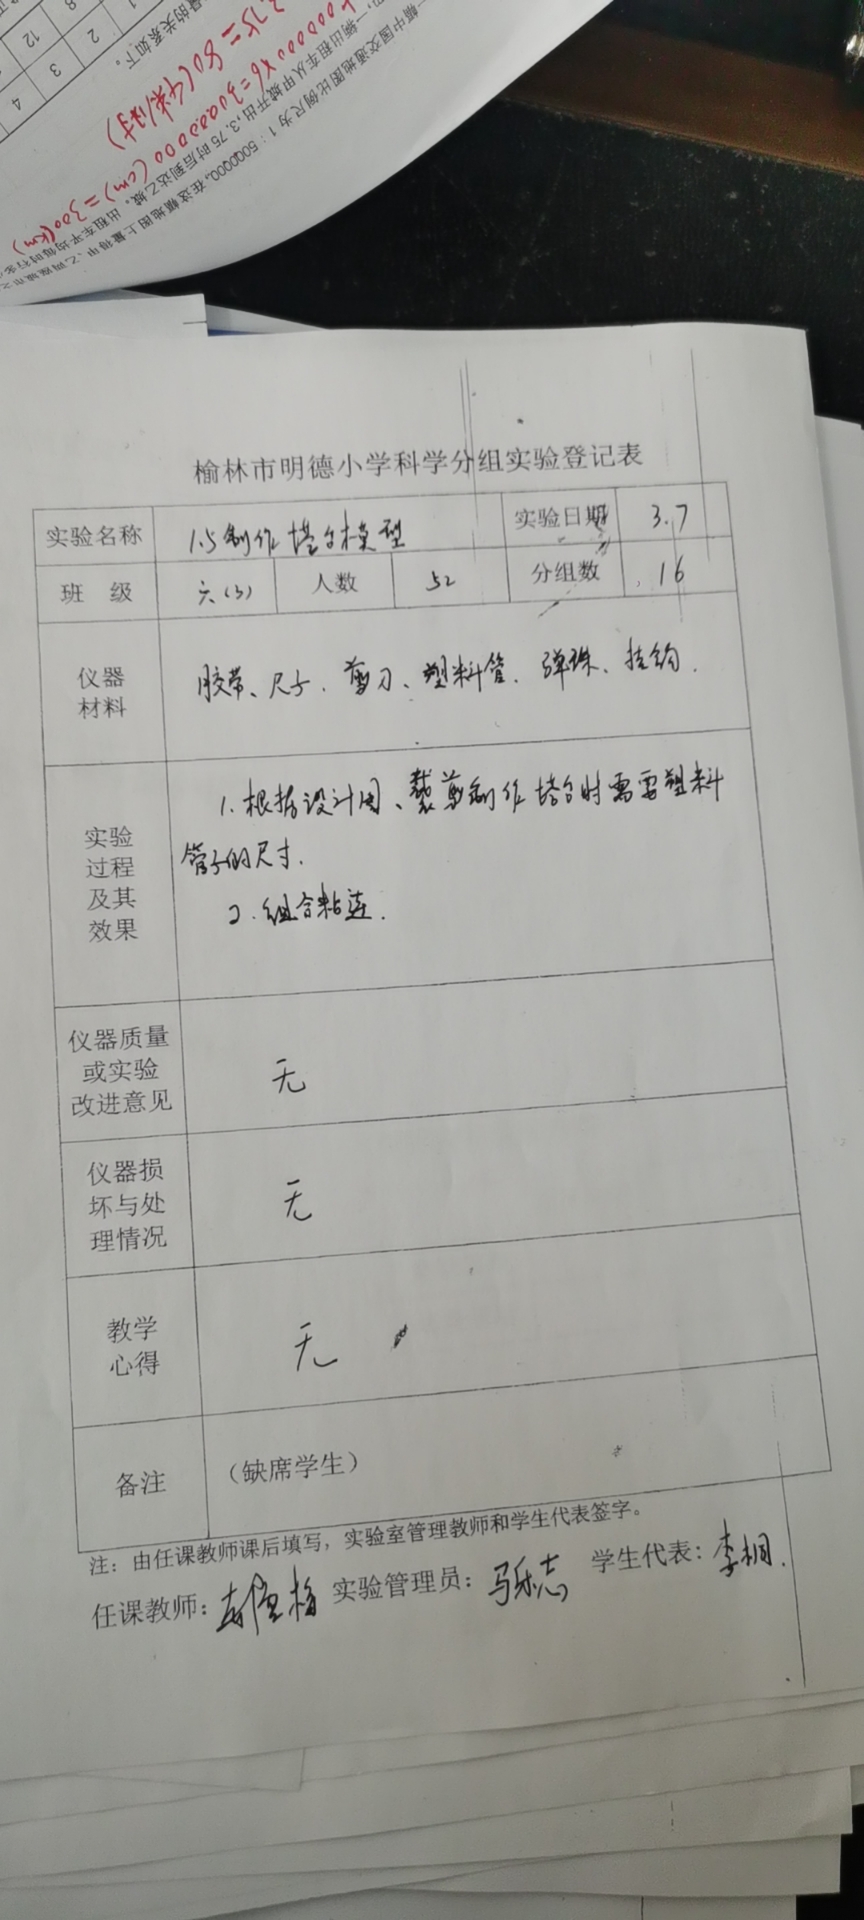 榆林市明德小学科学分组实验登记表
实验名称 1.5制作塔台模型 实验日期 3.7
班 级 六(3) 人数 52 分组数 16
仪器材料 胶带、尺子、剪刀、塑料管、弹珠、挂钩.
实验过程及其效果 1.根据设计图、裁剪制作塔台时需要塑料
管子的尺寸.
2.组合粘连.
仪器质量或实验改进意见 无
仪器损坏与处理情况 无
教学心得 无
备注 (缺席学生)
注：由任课教师课后填写，实验室管理教师和学生代表签字。
任课教师： 实验管理员：马乐志 学生代表：李桐.
1：5000000。在这幅地图上量得甲、乙两
一辆出租车从甲城开出，3.75时后到达乙城。出租车平均每时行
000000×6=30000000(cm)=300(km)
3.75=80(千米/时)
的关系如下。
1 2 3 4
8 12